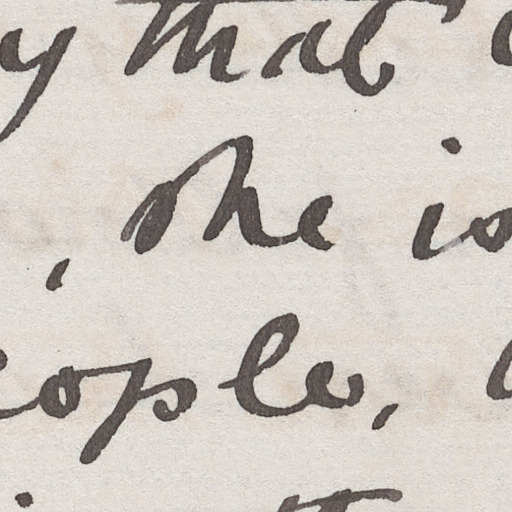 y that
, she is
eople,